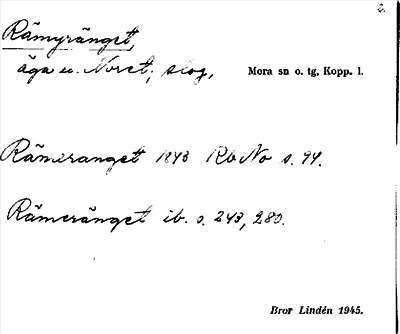 2.
Rämyränget,
äga u. Noret; skog,
Mora sn o. tg, Kopp. l.
Rämeranget 1843 Rb No s. 94.
Rämeränget ib. s. 243, 280.
Bror Lindén 1945.